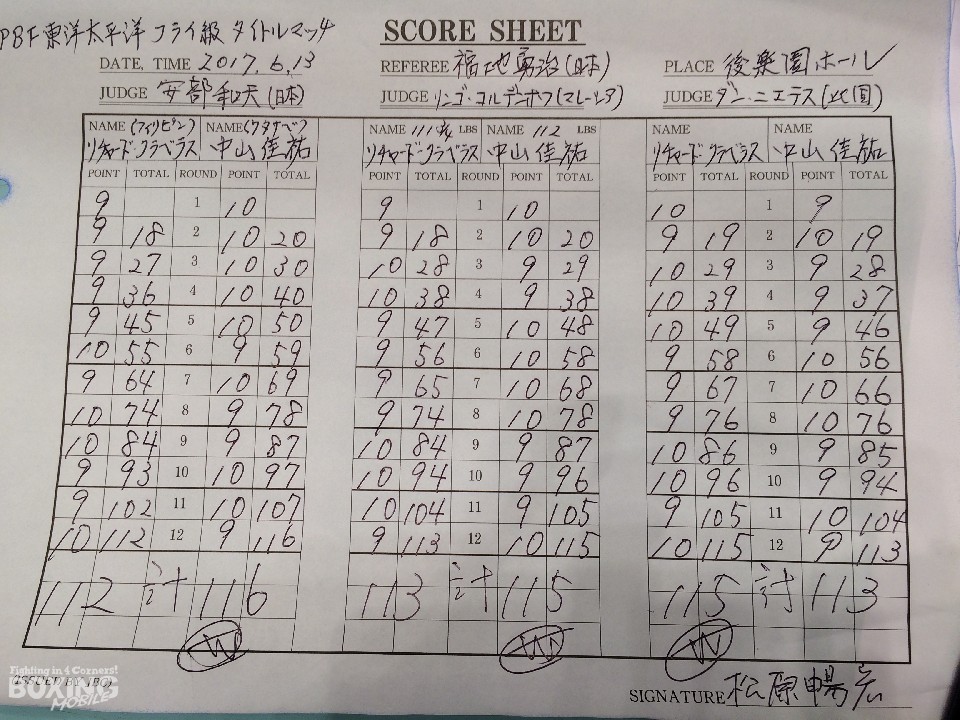 PBF東洋太平洋 フライ級 タイトルマッチ
SCORE SHEET
DATE, TIME 2017.6.13
REFEREE 福地勇治(日本)
PLACE 後楽園ホール
JUDGE 安部和夫(日本)
JUDGE リンゴ・コルデンホフ(マレーシア)
JUDGE ダン・ニエテス(比国)
NAME (フィリピン) NAME (ワタナベ)
NAME 111 LBS NAME 112 LBS
NAME NAME
リチャード・クラベラス 中山佳祐
リチャード・クラベラス 中山佳祐
リチャード・クラベラス 中山佳祐
POINT TOTAL ROUND POINT TOTAL POINT TOTAL ROUND POINT TOTAL POINT TOTAL ROUND POINT TOTAL
9 1 10 9 1 10 10 1 9
9 18 2 10 20 9 18 2 10 20 9 19 2 10 19
9 27 3 10 30 10 28 3 9 29 10 29 3 9 28
9 36 4 10 40 10 38 4 9 38 10 39 4 9 37
9 45 5 10 50 9 47 5 10 48 10 49 5 9 46
10 55 6 9 59 9 56 6 10 58 9 58 6 10 56
9 64 7 10 69 9 65 7 10 68 9 67 7 10 66
10 74 8 9 78 9 74 8 10 78 9 76 8 10 76
10 84 9 9 87 10 84 9 9 87 10 86 9 9 85
9 93 10 10 97 10 94 10 9 96 10 96 10 9 94
9 102 11 10 107 10 104 11 9 105 9 105 11 10 104
10 112 12 9 116 9 113 12 10 115 10 115 12 9 113
112 計 116 113 計 115 115 計 113
W W W
ISSUED BY JBC
Fighting in 4 Corners!
BOXING
MOBILE
SIGNATURE 松原暢宏